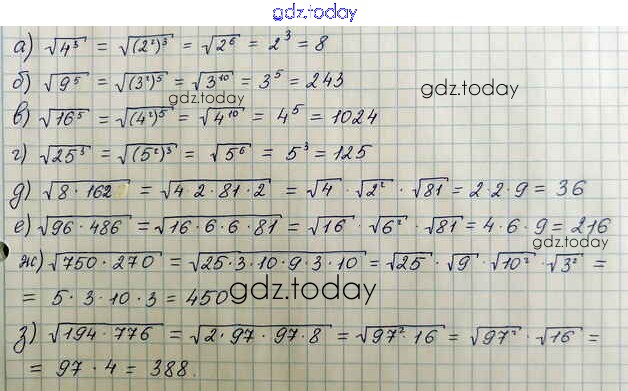 gdz.today
а) √4³ = √(2²)³ = √2⁶ = 2³ = 8
б) √9⁵ = √(3²)⁵ = √3¹⁰ = 3⁵ = 243
gdz.today
gdz.today
в) √16⁵ = √(4²)⁵ = √4¹⁰ = 4⁵ = 1024
г) √25³ = √(5²)³ = √5⁶ = 5³ = 125
д) √8 · 162 = √4 · 2 · 81 · 2 = √4 · √2² · √81 = 2 · 2 · 9 = 36
е) √96 · 486 = √16 · 6 · 6 · 81 = √16 · √6² · √81 = 4 · 6 · 9 = 216
gdz.today
ж) √750 · 270 = √25 · 3 · 10 · 9 · 3 · 10 = √25 · √9 · √10² · √3² =
= 5 · 3 · 10 · 3 = 450
gdz.today
з) √194 · 776 = √2 · 97 · 97 · 8 = √97² · 16 = √97² · √16 =
= 97 · 4 = 388.